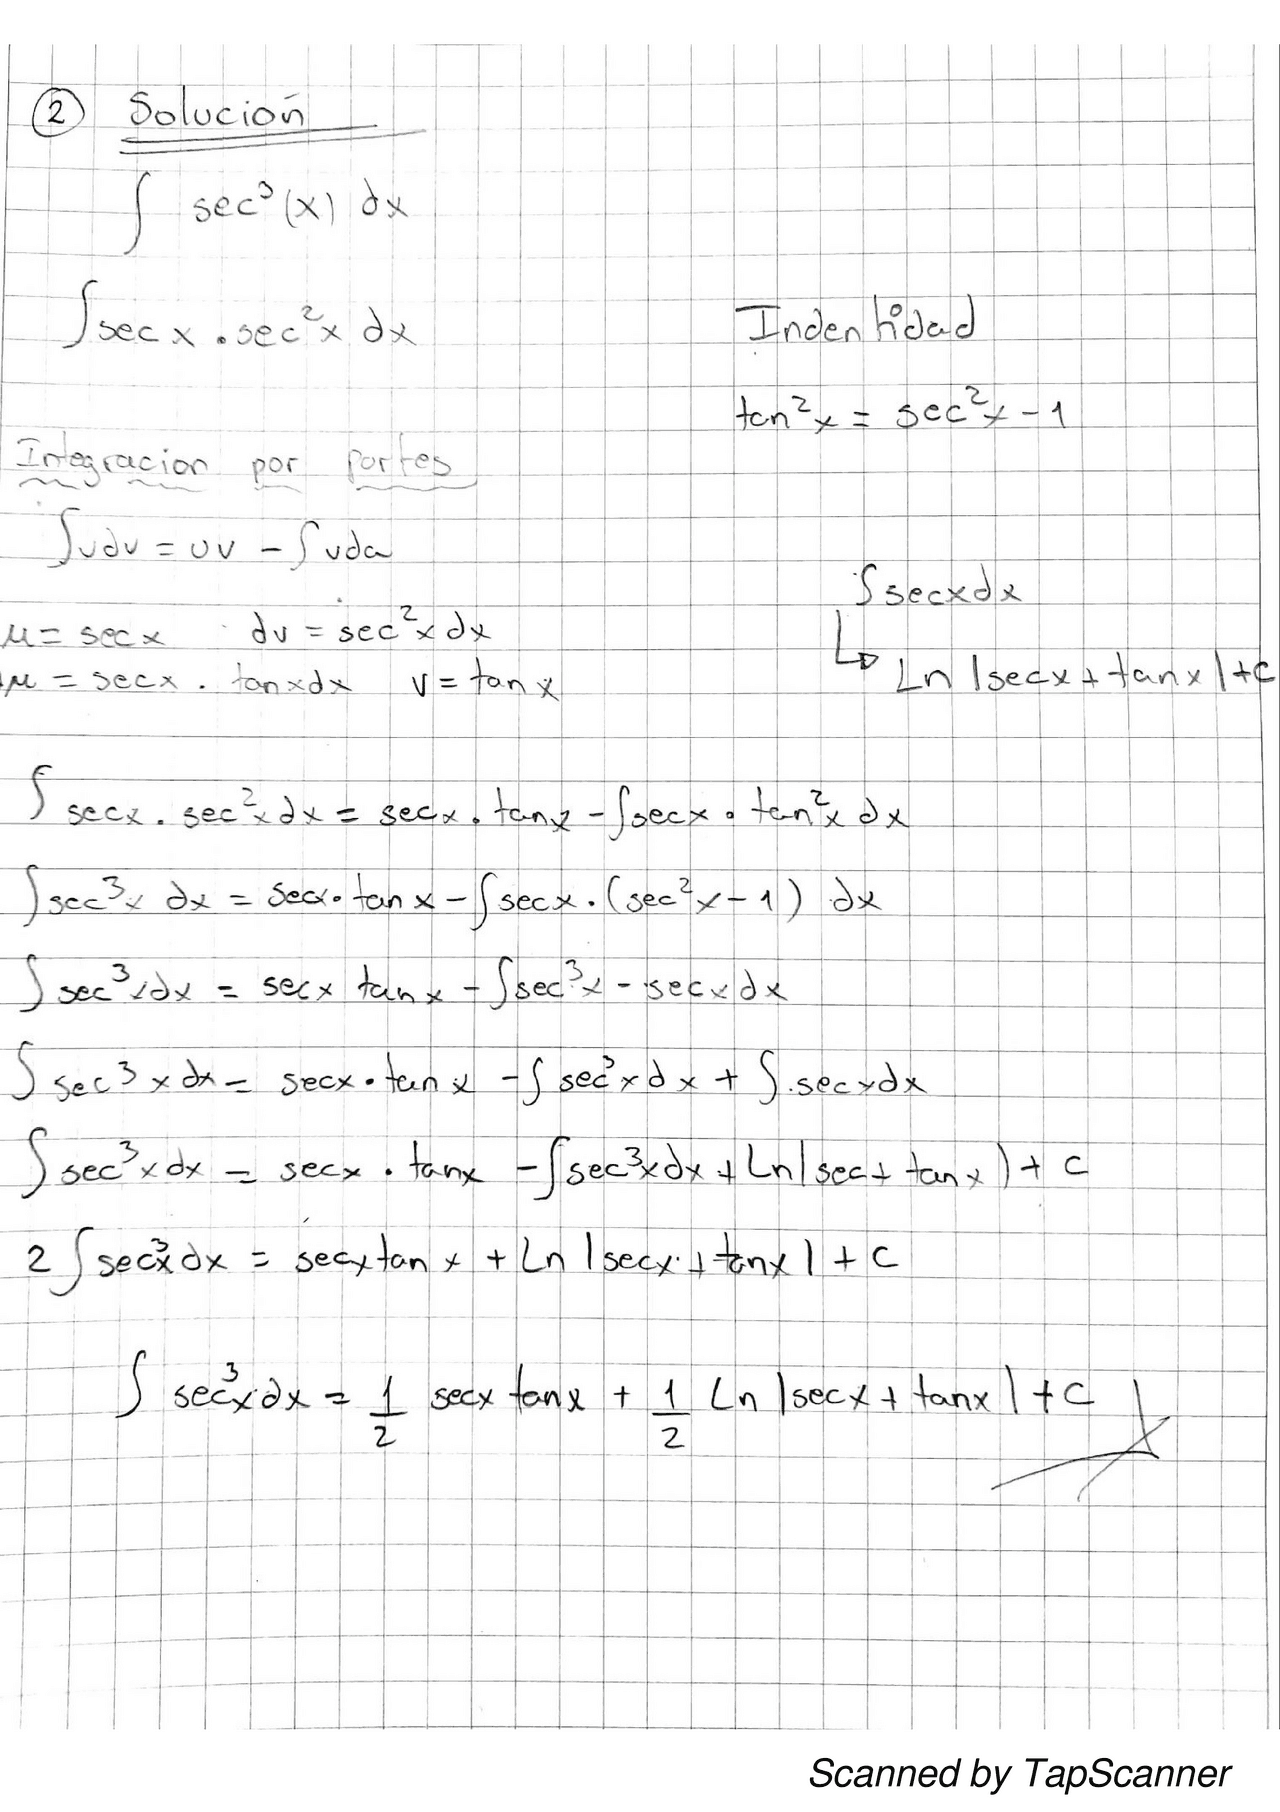 ② Solución
∫ sec³(x) dx
∫secx . sec²x dx
Indentidad
tan²x = sec²x - 1
Integracion por partes
∫udv = uv - ∫vdu
∫secxdx
Ln |secx + tanx| + C
μ = secx dv = sec²x dx
dμ = secx . tanxdx v = tanx
∫ secx . sec²x dx = secx . tanx - ∫secx . tan²x dx
∫sec³x dx = secx . tanx - ∫secx . (sec²x - 1) dx
∫sec³xdx = secx tanx - ∫sec³x - secxdx
∫sec³xdx = secx . tanx - ∫sec³xdx + ∫.secxdx
∫sec³xdx = secx . tanx - ∫sec³xdx + Ln|sec + tanx) + C
2∫sec³xdx = secxtanx + Ln |secx + tanx| + C
∫sec³xdx = 1/2 secx tanx + 1/2 Ln |secx + tanx| + C
Scanned by TapScanner